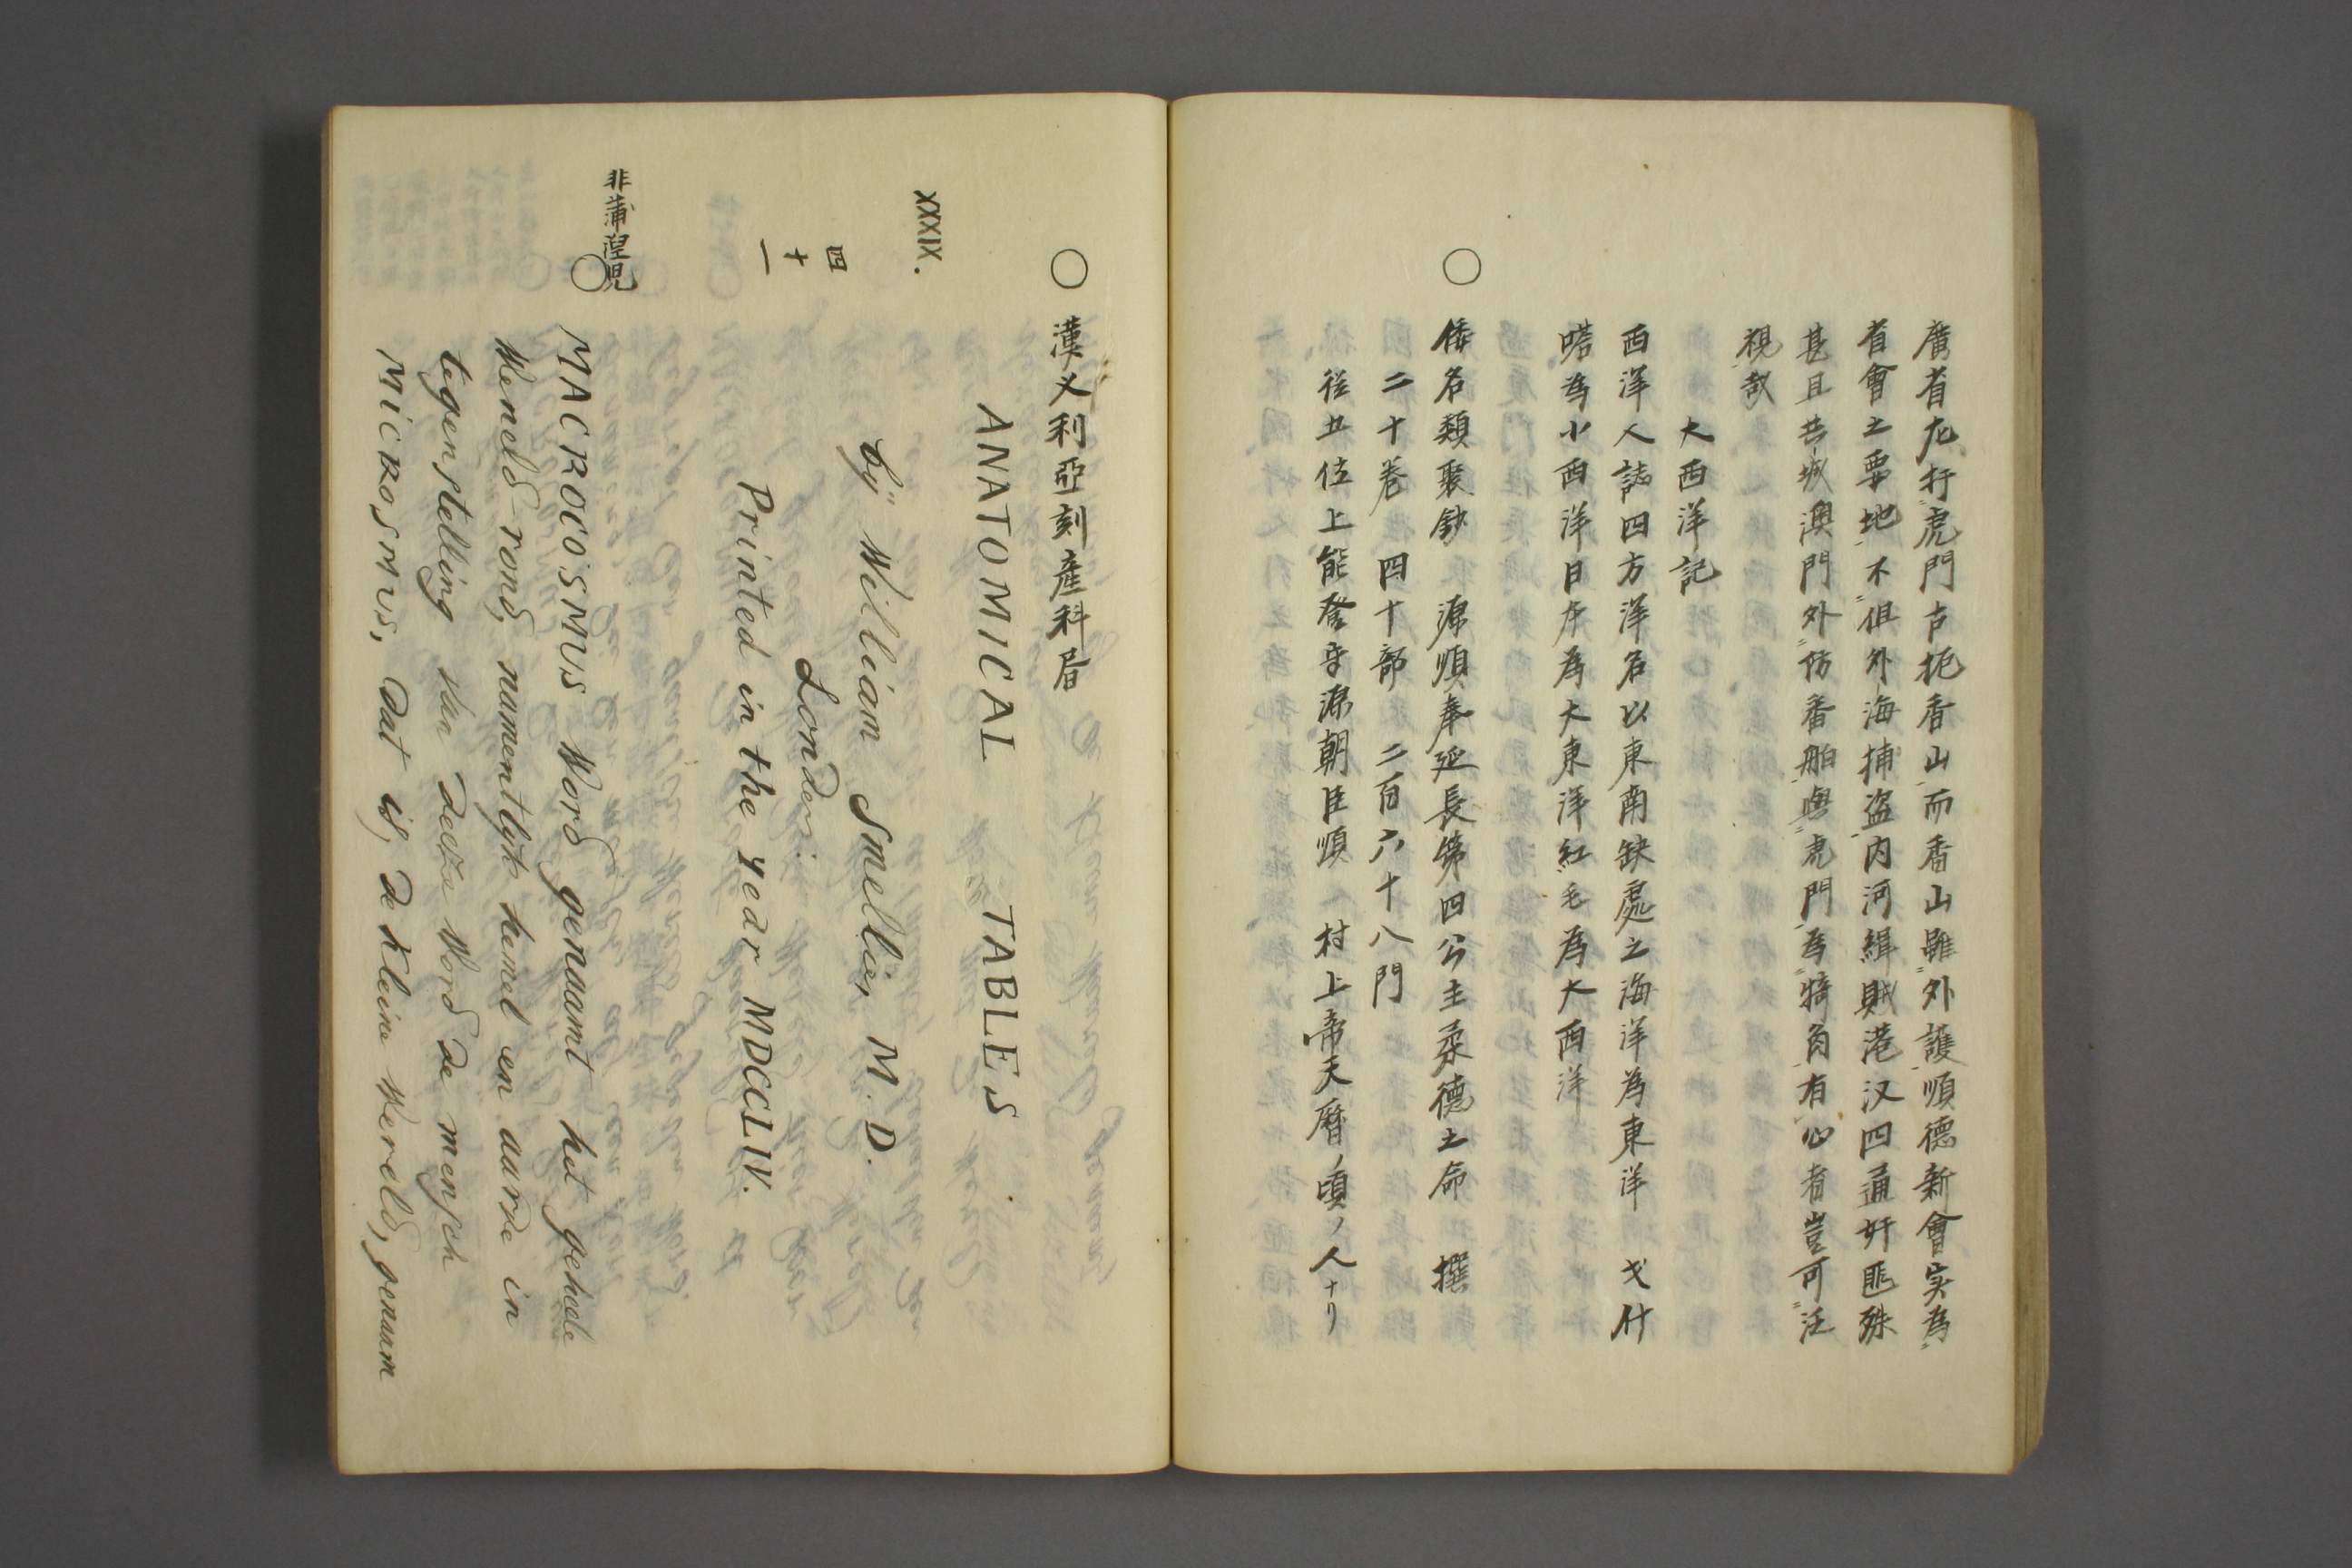 廣省左扞虎門右扼香山而香山雖外護順德新會实為
省會之要地不但外海捕盗内河緝賊港汊四通奸匪殊
甚且共城澳門外防番舶與虎門為犄角有心者豈可泛
視哉
大西洋記
西洋人誌四方洋名以東南缺處之海洋為東洋 戈什
嗒為小西洋日本為大東洋紅毛為大西洋
○倭名類聚鈔 源順奉延長第四公主柔德之命 撰
二十巻 四十部 二百六十八門
従五位上能登守源朝臣順 村上帝天暦ノ頃ノ人ナリ
○漢乂利亞刻産科書
ANATOMICAL TABLES
XXXIX.
by William Smellie, M.D.
四十一
London:
Printed in the Year MDCCLIV.
非蒲涅児
○MACROCOSMUS Word genaamt het geheele
Wereld-rond, namentlyk hemel en aarde in
tegenstelling van deeze Word de mensch
MICROSMUS, dat is, de kleine Wereld, genaam